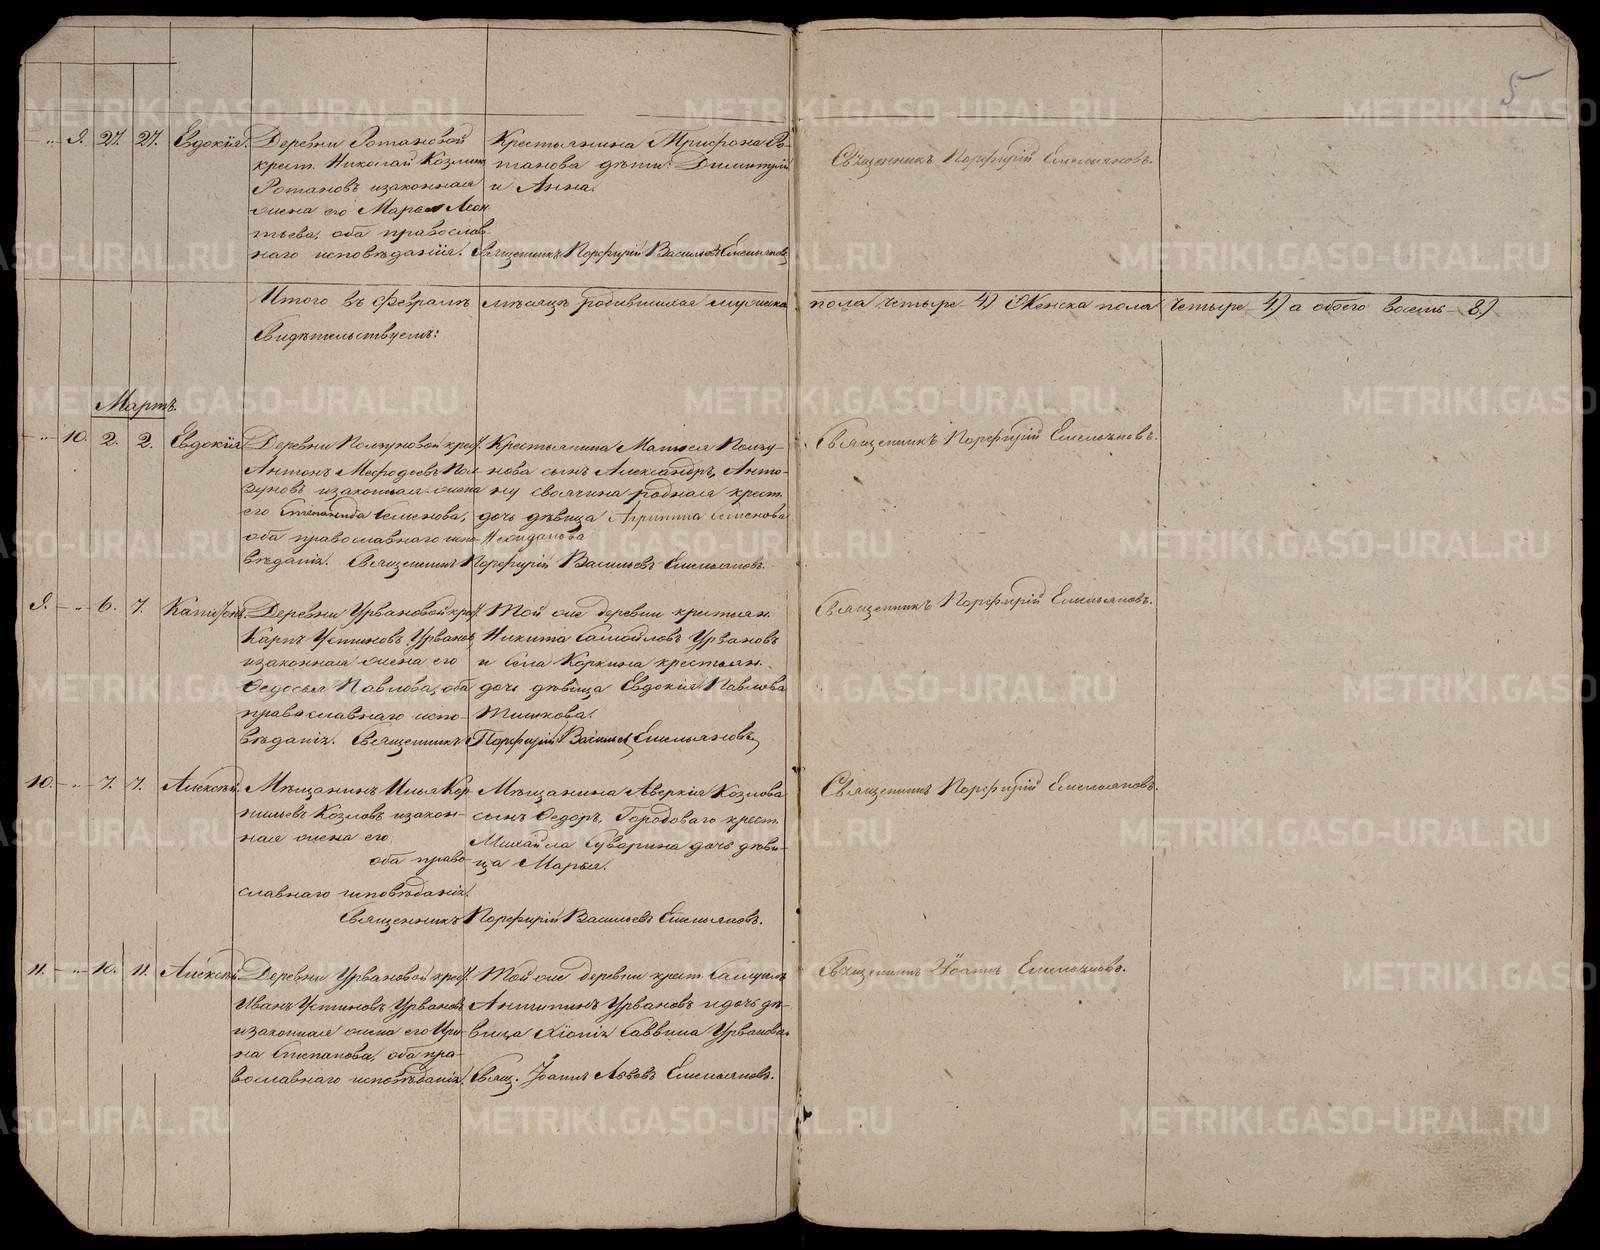 5
„ 9. 27. 27. Евдокія.
Деревни Ротановой
крест. Николай Козмин
Ротановъ изаконная
жена его Марья Леон
тьева, оба православ-
наго исповѣданія.
Крестьянина Трифона Ро-
танова дѣти: Димитрій
и Анна.
Священникъ Порфирій Васильевъ Емельяновъ
Священникъ Порфирій Емельяновъ.
Итого въ февралѣ мѣсяцѣ родившихся мужска пола четыре 4) Женска пола четыре 4) а обоего восемь 8.)
Свидѣтельствуемъ:
Мартъ.
„ 10. 2. 2. Евдокія
Деревни Ползуновой крест.
Антонъ Мефодьевъ Пол-
зуновъ изаконная жена
его Степанида Семенова,
оба православнаго испо-
вѣданія.
Крестьянина Матвея Ползу-
нова сынъ Александръ, Анто-
ну своячина родная крест.
дочь дѣвица Агрипина Семенова
Священникъ Порфирій Васильевъ Емельяновъ.
Священникъ Порфирій Емельяновъ.
9. „ 6. 7. Капитонъ.
Деревни Урвановой крест.
Карпъ Устиновъ Урвановъ
изаконная жена его
Федосья Павлова, оба
православнаго испо-
вѣданія.
Той же деревни крестьян.
Никита Самойловъ Урвановъ
и села Коркина крестьян.
дочь дѣвица Евдокія Павлова
Тишкова.
Священникъ Порфирій Васильевъ Емельяновъ
Священникъ Порфирій Емельяновъ.
10. „ 7. 7. Алексѣй.
Мѣщанинъ Илья Кор
нильевъ Козловъ изакон-
ная жена его
оба право-
славнаго исповѣданія.
Мѣщанина Аверкія Козлова
сынъ Федоръ, Городоваго крест.
Михайла Суварина дочь дѣви-
ца Марья.
Священникъ Порфирій Васильевъ Емельяновъ.
Священникъ Порфирій Емельяновъ.
11. „ 10. 11. Алексѣй.
Деревни Урвановой крест.
Иванъ Устиновъ Урвановъ
изаконная жена его Ири-
на Степанова, оба пра-
вославнаго исповѣданія.
Той же деревни крест. Самуилъ
Антипинъ Урвановъ и дочь дѣ-
вица Хіонія Саввина Урванова.
Свящ. Іоаннъ Львовъ Емельяновъ.
Священникъ Іоаннъ Емельяновъ.
METRIKI.GASO-URAL.RU